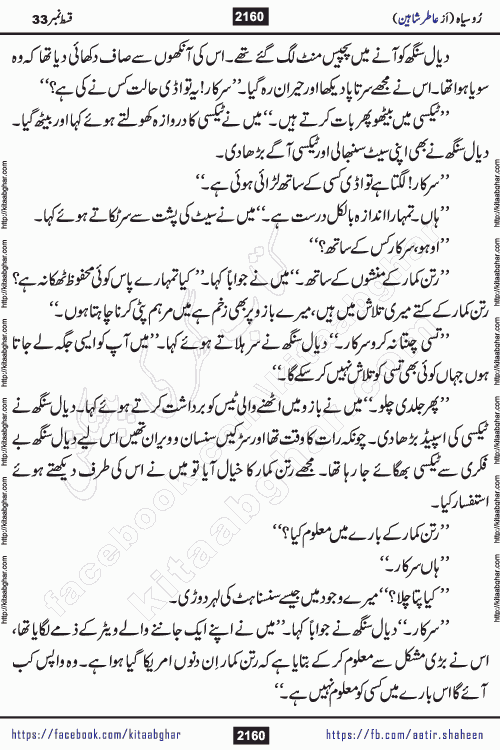 رُوسیاہ (از عاطر شاہین)
2160
قسط نمبر 33
دیال سنگھ کو آنے میں پچیس منٹ لگ گئے تھے۔ اس کی آنکھوں سے صاف دکھائی دیا تھا کہ وہ
سویا ہوا تھا۔ اس نے مجھے سرتاپا دیکھا اور حیران رہ گیا۔ ’’سرکار! یہ تو اڈی حالت کس نے کی ہے؟‘‘
’’ٹیکسی میں بیٹھو پھر بات کرتے ہیں۔‘‘ میں نے ٹیکسی کا دروازہ کھولتے ہوئے کہا اور بیٹھ گیا۔
دیال سنگھ نے بھی اپنی سیٹ سنبھالی اور ٹیکسی آگے بڑھا دی۔
’’سرکار! لگتا ہے تو اڈی کسی کے ساتھ لڑائی ہوئی ہے۔‘‘
’’ہاں۔ تمہارا اندازہ بالکل درست ہے۔‘‘ میں نے سیٹ کی پشت سے سر ٹکاتے ہوئے کہا۔
’’اوہو، سرکار کس کے ساتھ؟‘‘
’’رتن کمار کے منشوں کے ساتھ۔‘‘ میں نے جواباً کہا۔ ’’کیا تمہارے پاس کوئی محفوظ ٹھکانہ ہے؟
رتن کمار کے کتے میری تلاش میں ہیں، میرے بازو پر بھی زخم ہے میں مرہم پٹی کرنا چاہتا ہوں۔‘‘
’’تسی چنتا نہ کرو سرکار۔‘‘ دیال سنگھ نے سر ہلاتے ہوئے کہا۔ ’’میں آپ کو ایسی جگہ لے جاتا
ہوں جہاں کوئی بھی تسی کو تلاش نہیں کر سکے گا۔‘‘
’’پھر جلدی چلو۔‘‘ میں نے بازو میں اٹھنے والی ٹیس کو برداشت کرتے ہوئے کہا۔ دیال سنگھ نے
ٹیکسی کی اسپیڈ بڑھا دی۔ چونکہ رات کا وقت تھا اور سڑکیں سنسان و ویران تھیں اس لیے دیال سنگھ بے
فکری سے ٹیکسی بھگائے جا رہا تھا۔ مجھے رتن کمار کا خیال آیا تو میں نے اس کی طرف دیکھتے ہوئے
استفسار کیا۔
’’رتن کمار کے بارے میں معلوم کیا؟‘‘
’’ہاں سرکار۔‘‘
’’کیا پتا چلا؟‘‘ میرے وجود میں جیسے سنسناہٹ کی لہر دوڑ ی۔
’’سرکار۔‘‘ دیال سنگھ نے جواباً کہا۔ ’’میں نے اپنے ایک جاننے والے ویٹر کے ذمے لگایا تھا،
اس نے بڑی مشکل سے معلوم کر کے بتایا ہے کہ رتن کمار ان دنوں امریکا گیا ہوا ہے۔ وہ واپس کب
آئے گا اس بارے میں کسی کو معلوم نہیں ہے۔‘‘
https://facebook.com/kitaabghar
2160
https://fb.com/aatir.shaheen
http://kitaabghar.com
http://kitaabghar.com
http://kitaabghar.com
http://kitaabghar.com
http://kitaabghar.com
http://kitaabghar.com
http://kitaabghar.com
http://kitaabghar.com
http://kitaabghar.com
http://kitaabghar.com
http://kitaabghar.com
http://kitaabghar.com
کتاب گھر کی پیشکش
kitaabghar.com
facebook.com/kitaabghar